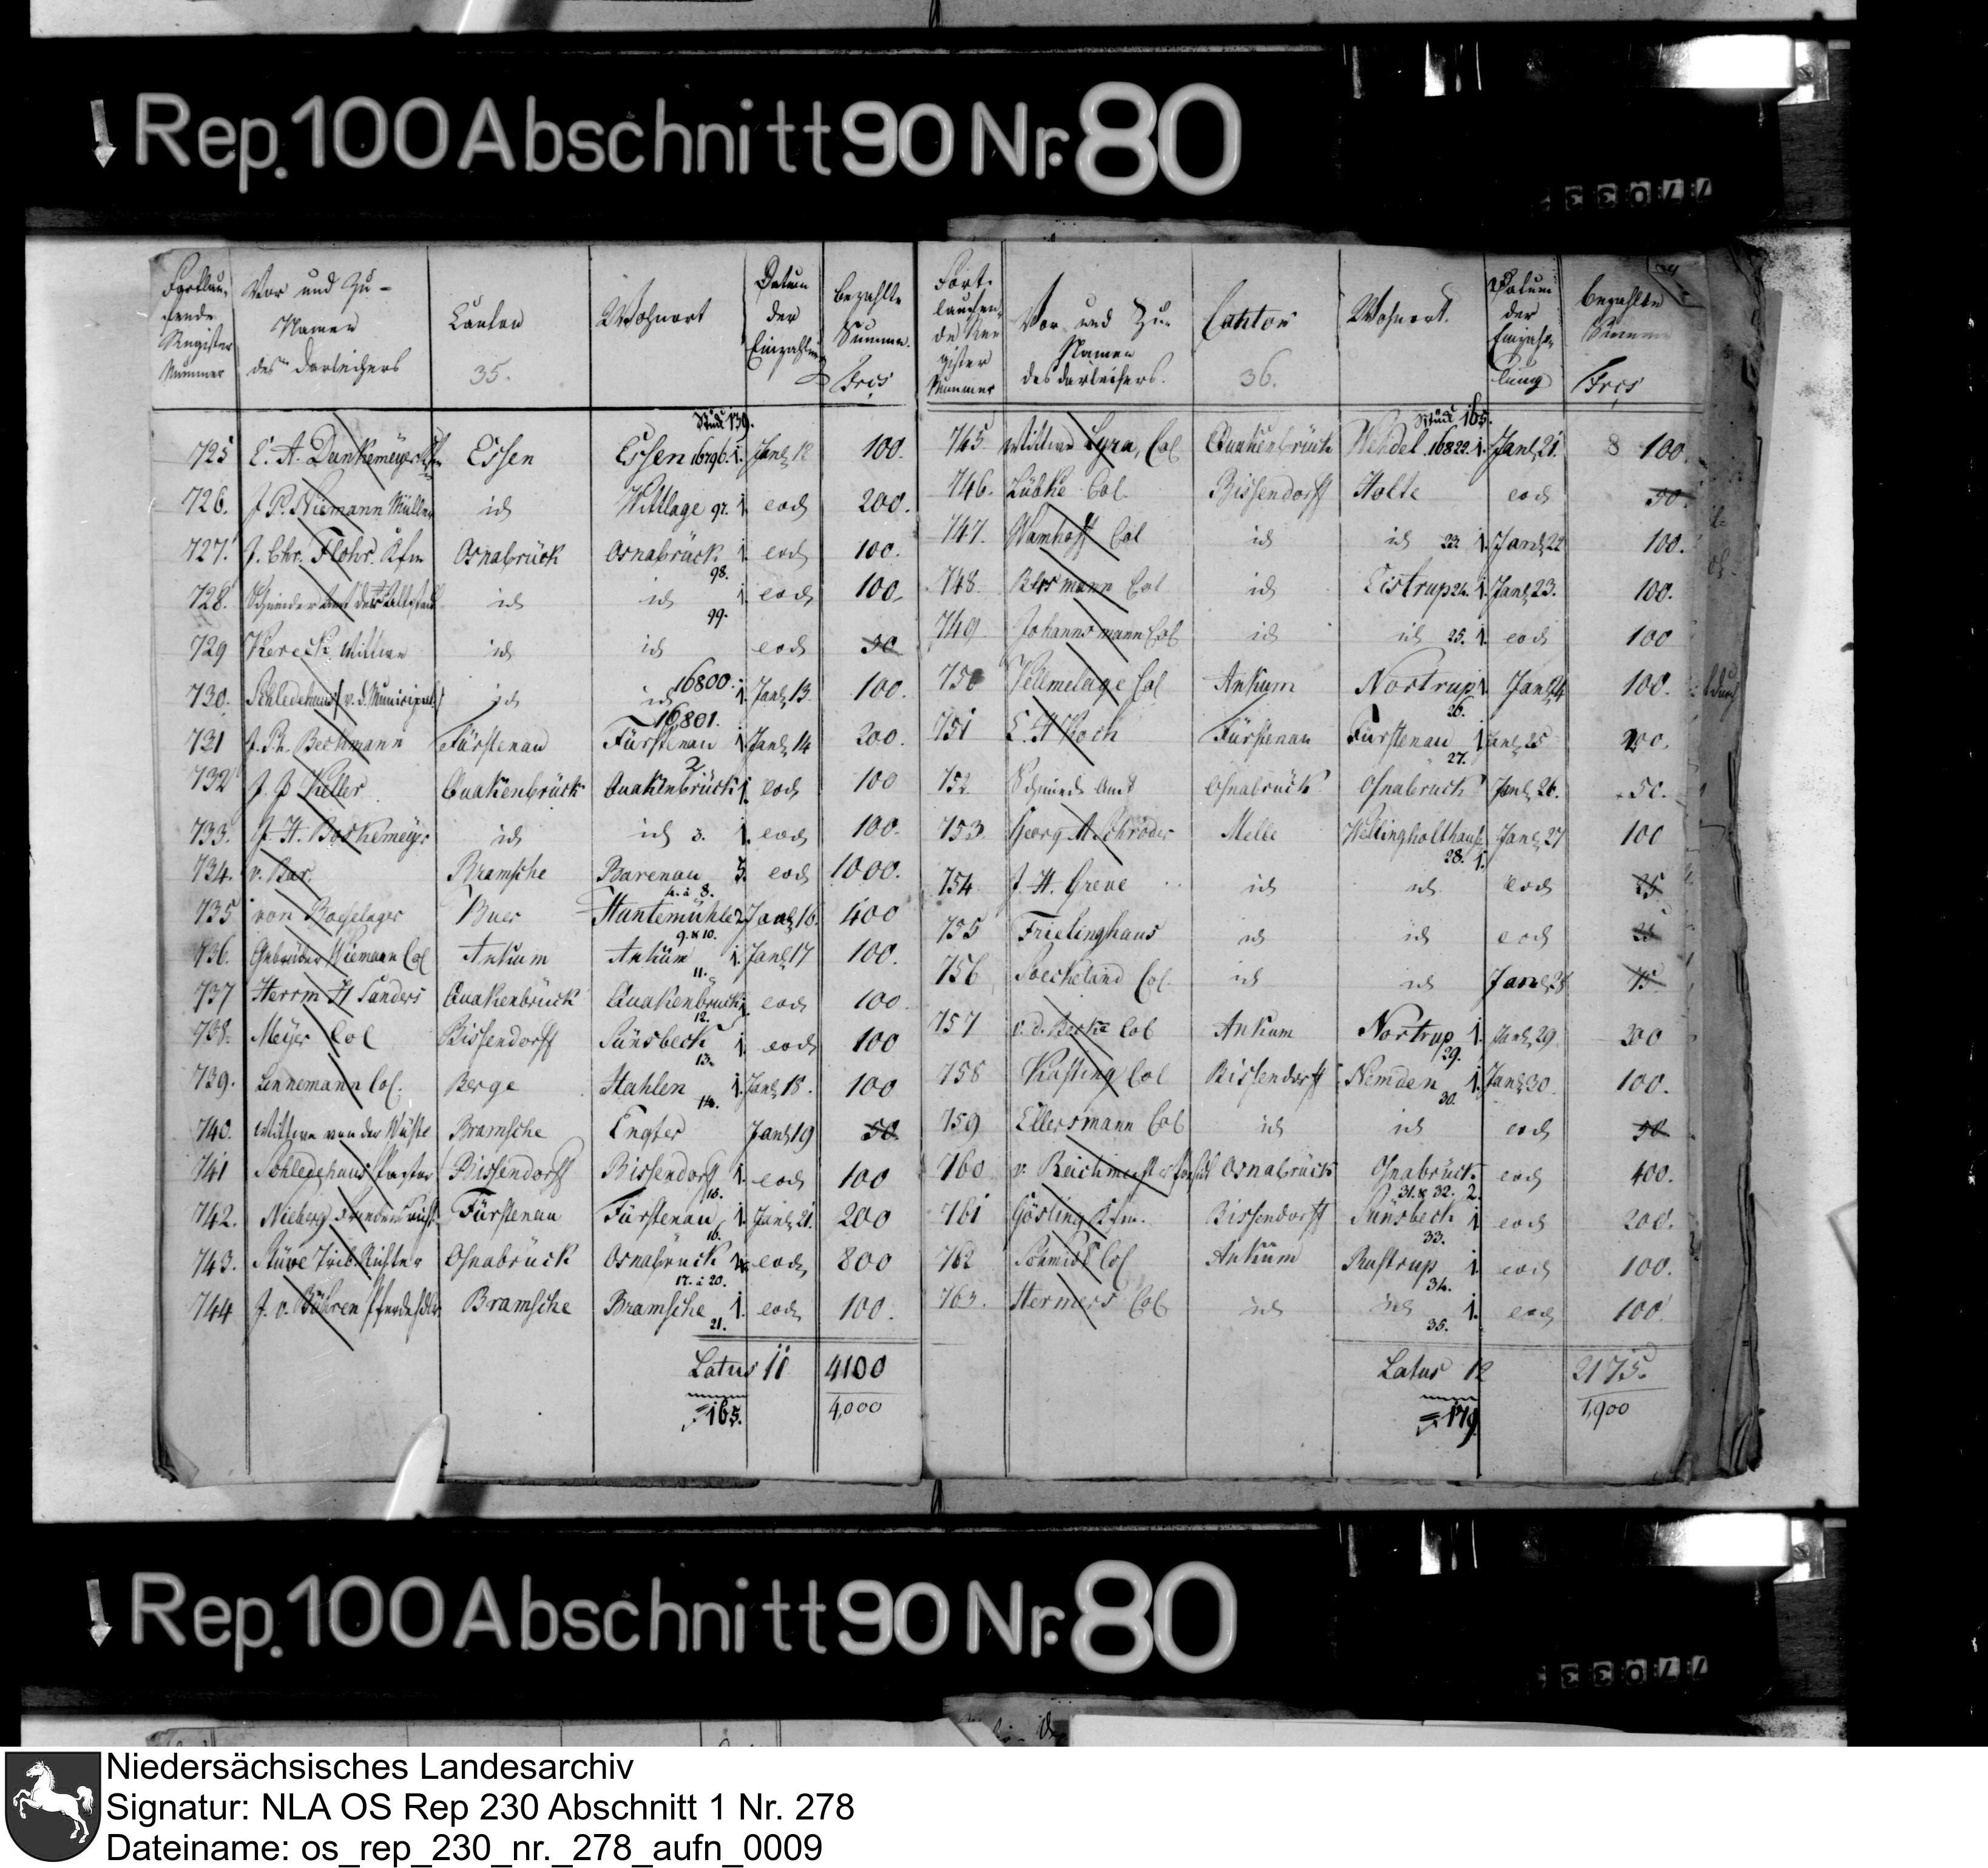 Rep. 100 Abschnitt 90 Nr. 80
77033
Fortlau-
fende
Register
Nummer
Vor und Zu-
Namen
des Darleihers
Canton
35.
Wohnort
Datum
der
Einzahlung
bezahlte
Summe.
Frcs
Stück 139.
725 E. A. Dunkemeyer Essen Essen 16796. 1. 12 100.
726. J. P. Niemann Müller id Wittlage 97. 1. eod 200.
727. J. Chr. Flohr. Kfm Osnabrück Osnabrück 1. eod 100.
98.
728. id id 1. eod 100.
99.
729 Wittwe id id eod 50
730. Schledehaus v. d. Municipal id id 16800. 1. 13 100.
16,801.
731 J. Beckmann Fürstenau Fürstenau 1. 14 200.
2
732 J. Keller Quakenbrück Quakenbrück 1. eod 100
733. J. H. Boskemeyer id id 3. 1. eod 100.
734. v. Bar. Bramsche Barenau 5. eod 1000.
4. à 8.
735 von Boeselager Buer Huntemühle 2. 16. 400
9. & 10.
736. Gebrüder Niemann Col Ankum Ankum 1. 17 100.
11.
737 Herrm H Sanders Quakenbrück Quakenbrück 1. eod 100
12.
738. Meyer Col Bissendorff Sünsbeck 1. eod 100
13.
739. Linnemann Col. Berge Hahlen 1. 18. 100
14.
740. Wittwe von der Wüste Bramsche Engter 19 50
741 Schledehaus Pastor Bissendorff Bissendorf 1. eod 100
15.
742. Nieberg Friedensricht Fürstenau Fürstenau 1. 21. 200
16.
743. Stüve Trib. Richter Osnabrück Osnabrück 4. eod 800
17. à 20.
744 J. v. Bühren Bramsche Bramsche 1. eod 100.
21.
Latus 11 4100
165. 4,000
Fort-
laufen-
de Re-
gister
Nummer
Vor- und Zu-
Namen
des Darleihers.
Canton
36.
Wohnort.
Datum
der
Einzah-
lung
bezahlte
Summe
Frcs
Stück 165.
745. Wittwe Lyra, Col Quakenbrück Wehdel 16822. 1. 21. 100.
746. Lübke Col. Bissendorff Holte eod 50.
747. Wamhoff Col id id 23. 1. 22 100.
748. mann Col id Eistrup 24. 1. 23. 100.
749 Johannsmann Col id id 25. 1. eod 100
750 Vellmelage Col Ankum Nortrup 1. 24 100.
26.
751 E. H Koch Fürstenau Fürstenau 1. 25 200.
27.
752 Schmiede Amt Osnabrück Osnabrück 26. 50.
753. Georg H. Schröder Melle Wellingholthaus 27 100
28. 1.
754 J. H. Greve id id eod 25
755 Frielinghaus id id eod 25
756 Soeckeland Col. id id 28 75
757 v. d. Berke Col Ankum Nortrup 1. 29 200
29.
758 Kasting Col Bissendorff Nemden 1. 30 100.
30.
759 Ellersmann Col id id eod 50
760 v. Reichmeister Osnabrück Osnabrück eod 400.
31. & 32. 2.
761 Gösling Kfm. Bissendorff Sünsbeck 1 eod 200.
33.
762 Schmidt Col Ankum Rustrup 1. eod 100.
34.
763. Hermers Col id id 1. eod 100.
35.
Latus 12 2175.
179. 1,900
Rep. 100 Abschnitt 90 Nr. 80
77033
Niedersächsisches Landesarchiv
Signatur: NLA OS Rep 230 Abschnitt 1 Nr. 278
Dateiname: os_rep_230_nr._278_aufn_0009